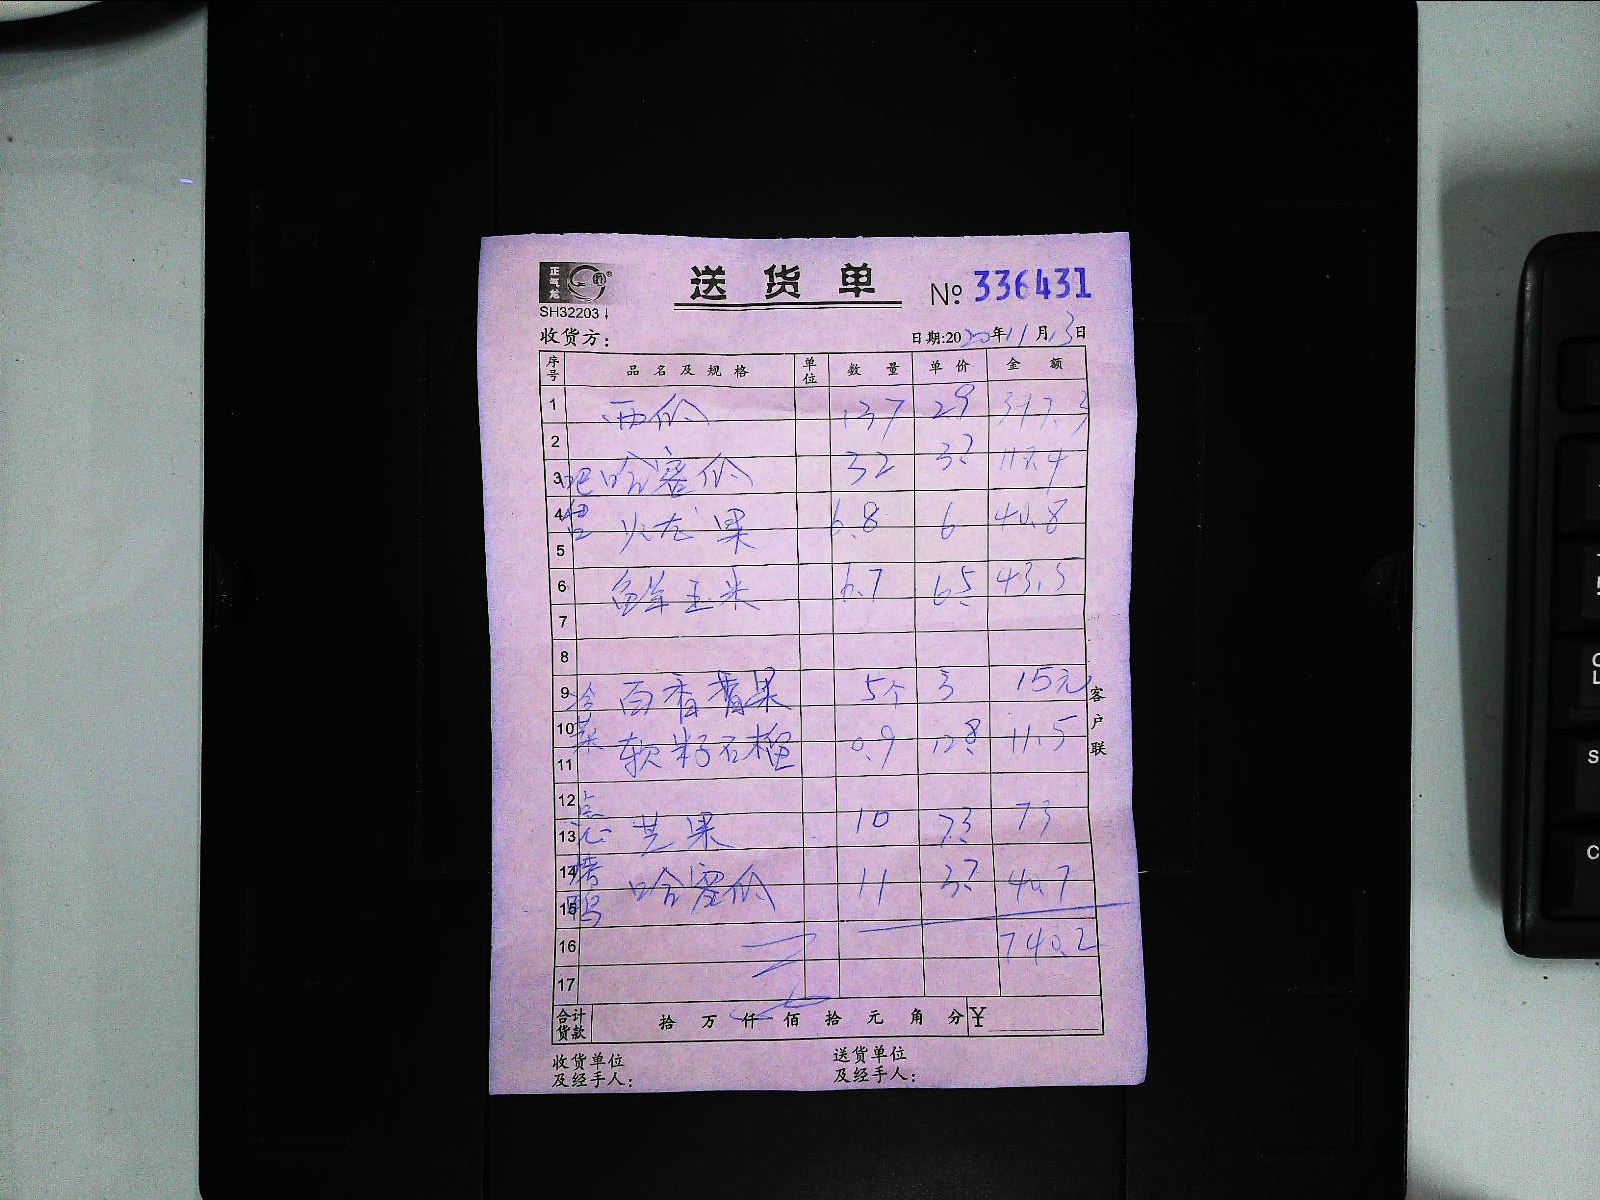 正气龙
送货单 № 336431
SH32203
收货方： 日期:2020年11月13日
序号 品名及规格 单位 数量 单价 金额
1 西瓜 137 2.9 397.3
2
3 吧 哈密瓜 32 3.7 118.4
4 火龙果 6.8 6 40.8
5
6 鲜玉米 6.7 6.5 43.5
7
8
9 冷 百香果 5个 3 15元
10 菜
11 软籽石榴 0.9 12.8 11.5
12 点
13 心 芒果 10 7.3 73
14 烤 哈密瓜 11 3.7 40.7
15 鸭
16 740.2
17
合计货款 拾 万 仟 佰 拾 元 角 分 ¥
客户联
收货单位 送货单位
及经手人： 及经手人：